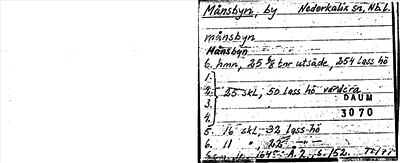 Månsbyn, by Nederkalix sn, Nb.l.
månsbyn
Månsbyn
6. hmn, 25 5/8 tnr utsäde, 254 lass hö
1.
2. 25 skl, 50 lass hö vardera
3.
4.
DAUM
3070
5. 16 skl, 32 lass hö
6. 11 " 22 "
1645: A. 2, s. 152.